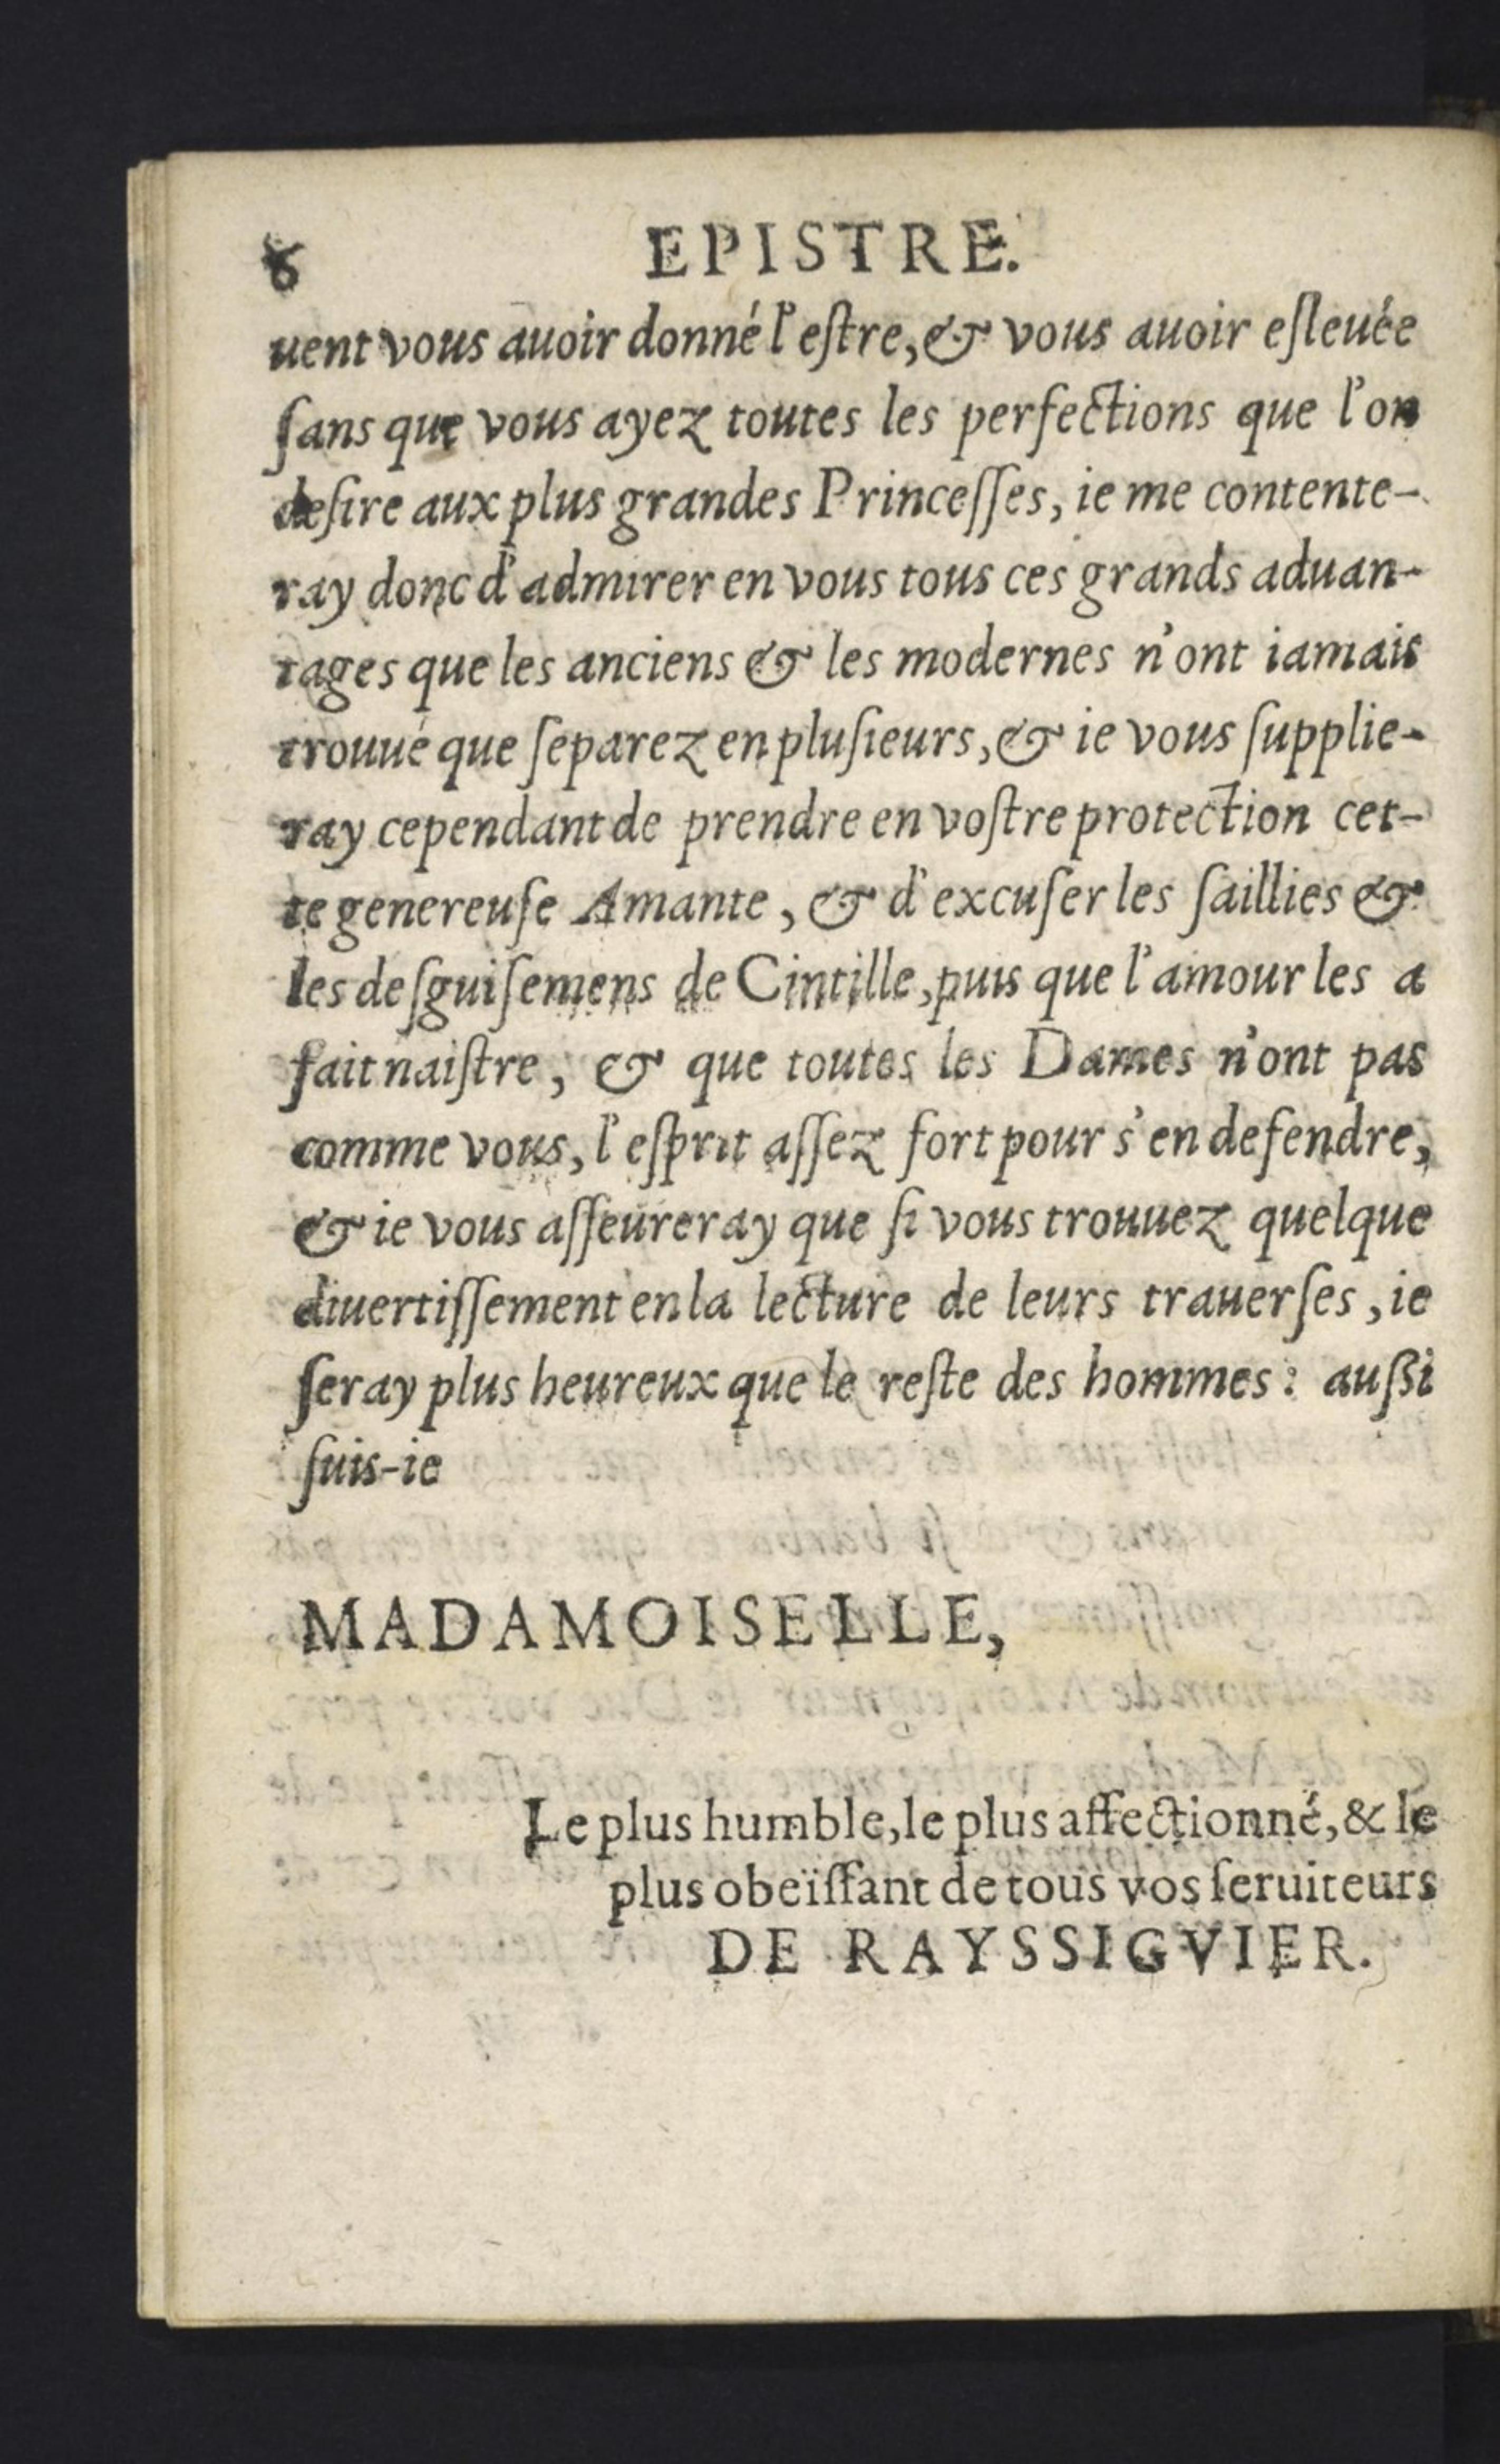 6 EPISTRE.
uent vous auoir donné l'eſtre, & vous auoir eſleuée
ſans que vous ayez toutes les perfections que l'on
deſire aux plus grandes Princeſſes, ie me contente-
ray donc d'admirer en vous tous ces grands aduan-
tages que les anciens & les modernes n'ont iamais
trouué que ſeparez en pluſieurs, & ie vous ſupplie-
ray cependant de prendre en voſtre protection cet-
te genereuſe Amante, & d'excuſer les ſaillies &
les deſguiſemens de Cintille, puis que l'amour les a
fait naiſtre, & que toutes les Dames n'ont pas
comme vous, l'eſprit aſſez fort pour s'en defendre,
& ie vous aſſeureray que ſi vous trouuez quelque
diuertiſſement en la lecture de leurs trauerſes, ie
ſeray plus heureux que le reſte des hommes: auſſi
ſuis-ie
MADAMOISELLE,
Le plus humble, le plus affectionné, & le
plus obeïſſant de tous vos ſeruiteurs
DE RAYSSIGVIER.